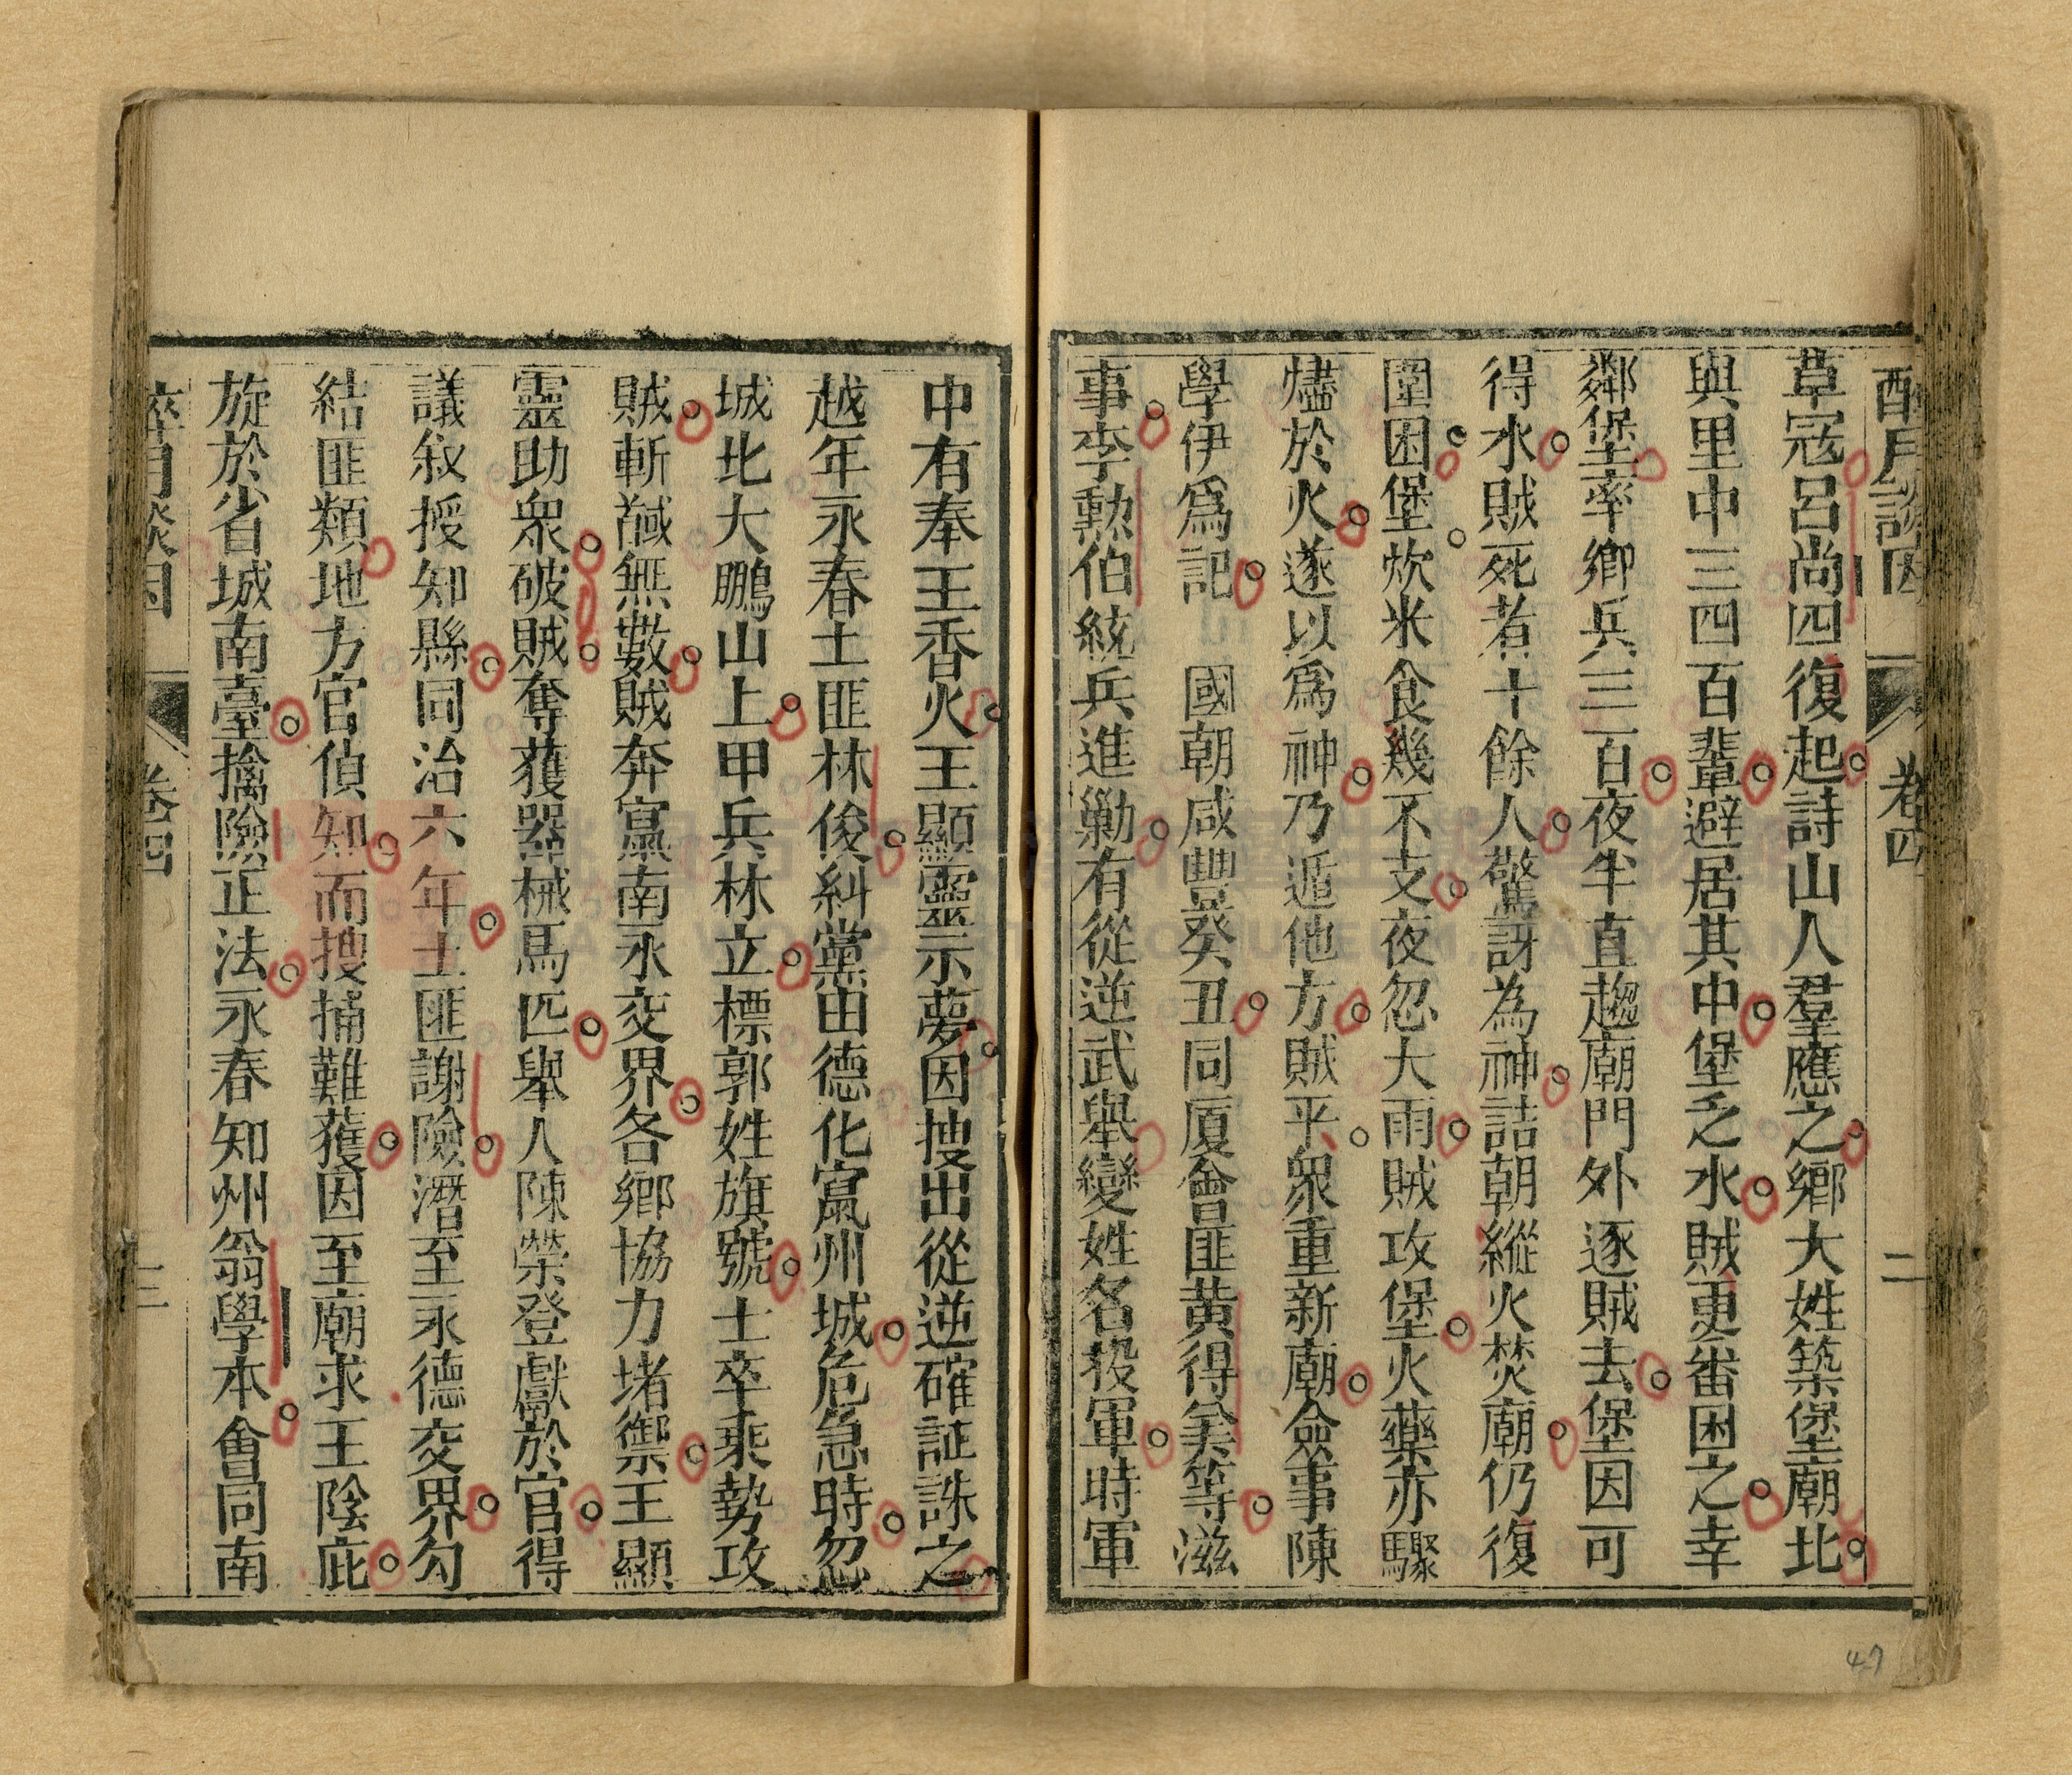 醉月談因 卷四 二
草寇呂尚四復起詩山人羣應之鄉大姓築堡廟北
與里中三四百輩避居其中堡乏水賊更番困之幸
鄰堡率鄉兵三百夜半直趨廟門外逐賊去堡因可
得水賊死者十餘人驚訝為神詰朝縱火焚廟仍復
圍困堡炊米食幾不支夜忽大雨賊攻堡火藥亦驟
燼於火遂以爲神乃遁他方賊平衆重新廟僉事陳
學伊爲記 國朝咸豐癸丑同厦會匪黃得美等滋
事李勲伯統兵進勦有從逆武舉變姓名投軍時軍
中有奉王香火王顯靈示夢因搜出從逆確証誅之
越年永春土匪林俊糾黨由德化窵州城危急時忽
城北大鵬山上甲兵林立標郭姓旗號士卒乘勢攻
賊斬馘無數賊奔窵南永交界各鄉協力堵禦王顯
靈助衆破賊奪獲器械馬匹舉人陳榮登獻於官得
議叙授知縣同治六年土匪謝險潛至永德交界勾
結匪類地方官偵知而搜捕難獲因至廟求王陰庇
旋於省城南臺擒險正法永春知州翁學本會同南
醉月談因 卷四 三
47